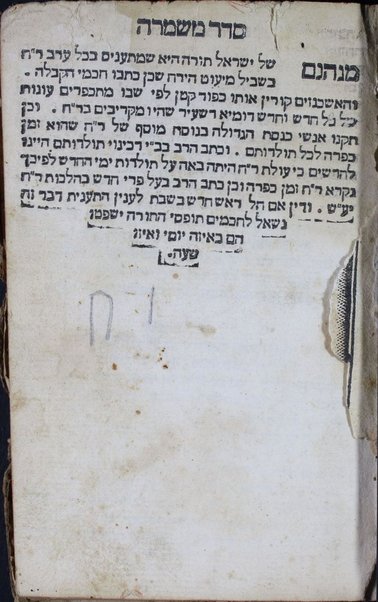 סדר משמרה
מנהגם של ישראל תורה היא שמתענים בכל ערב ר״ח
בשביל מיעוט הירח שכן כתבו חכמי הקבלה.
והאשכנזים קורין אותו כפור קטן לפי שבו מתכפרים עונות
של כל חדש וחדש דומיא דשעיר שהיו מקריבים בר״ח. וכן
תקנו אנשי כנסת הגדולה בנוסח מוסף של ר״ח שהוא זמן
כפרה לכל תולדותם. וכתב הרב בב״י דכינוי תולדותם היינו
לחדשים כי עולת ר״ח היתה באה על תולדות ימי החדש לפיכך
נקרא ר״ח זמן כפרה וכן כתב הרב בעל פרי חדש בהלכות ר״ח
יע״ש. ודין אם חל ראש חדש בשבת לענין התענית דבר זה
נשאל לחכמים תופסי התורה ישפטו
הם באיזה יומי ואיזו
שעה.
ח י